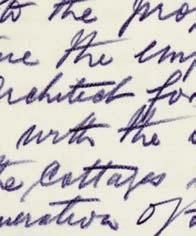 to the pro
the emp
Architect for
with the
the Cottages
neration of